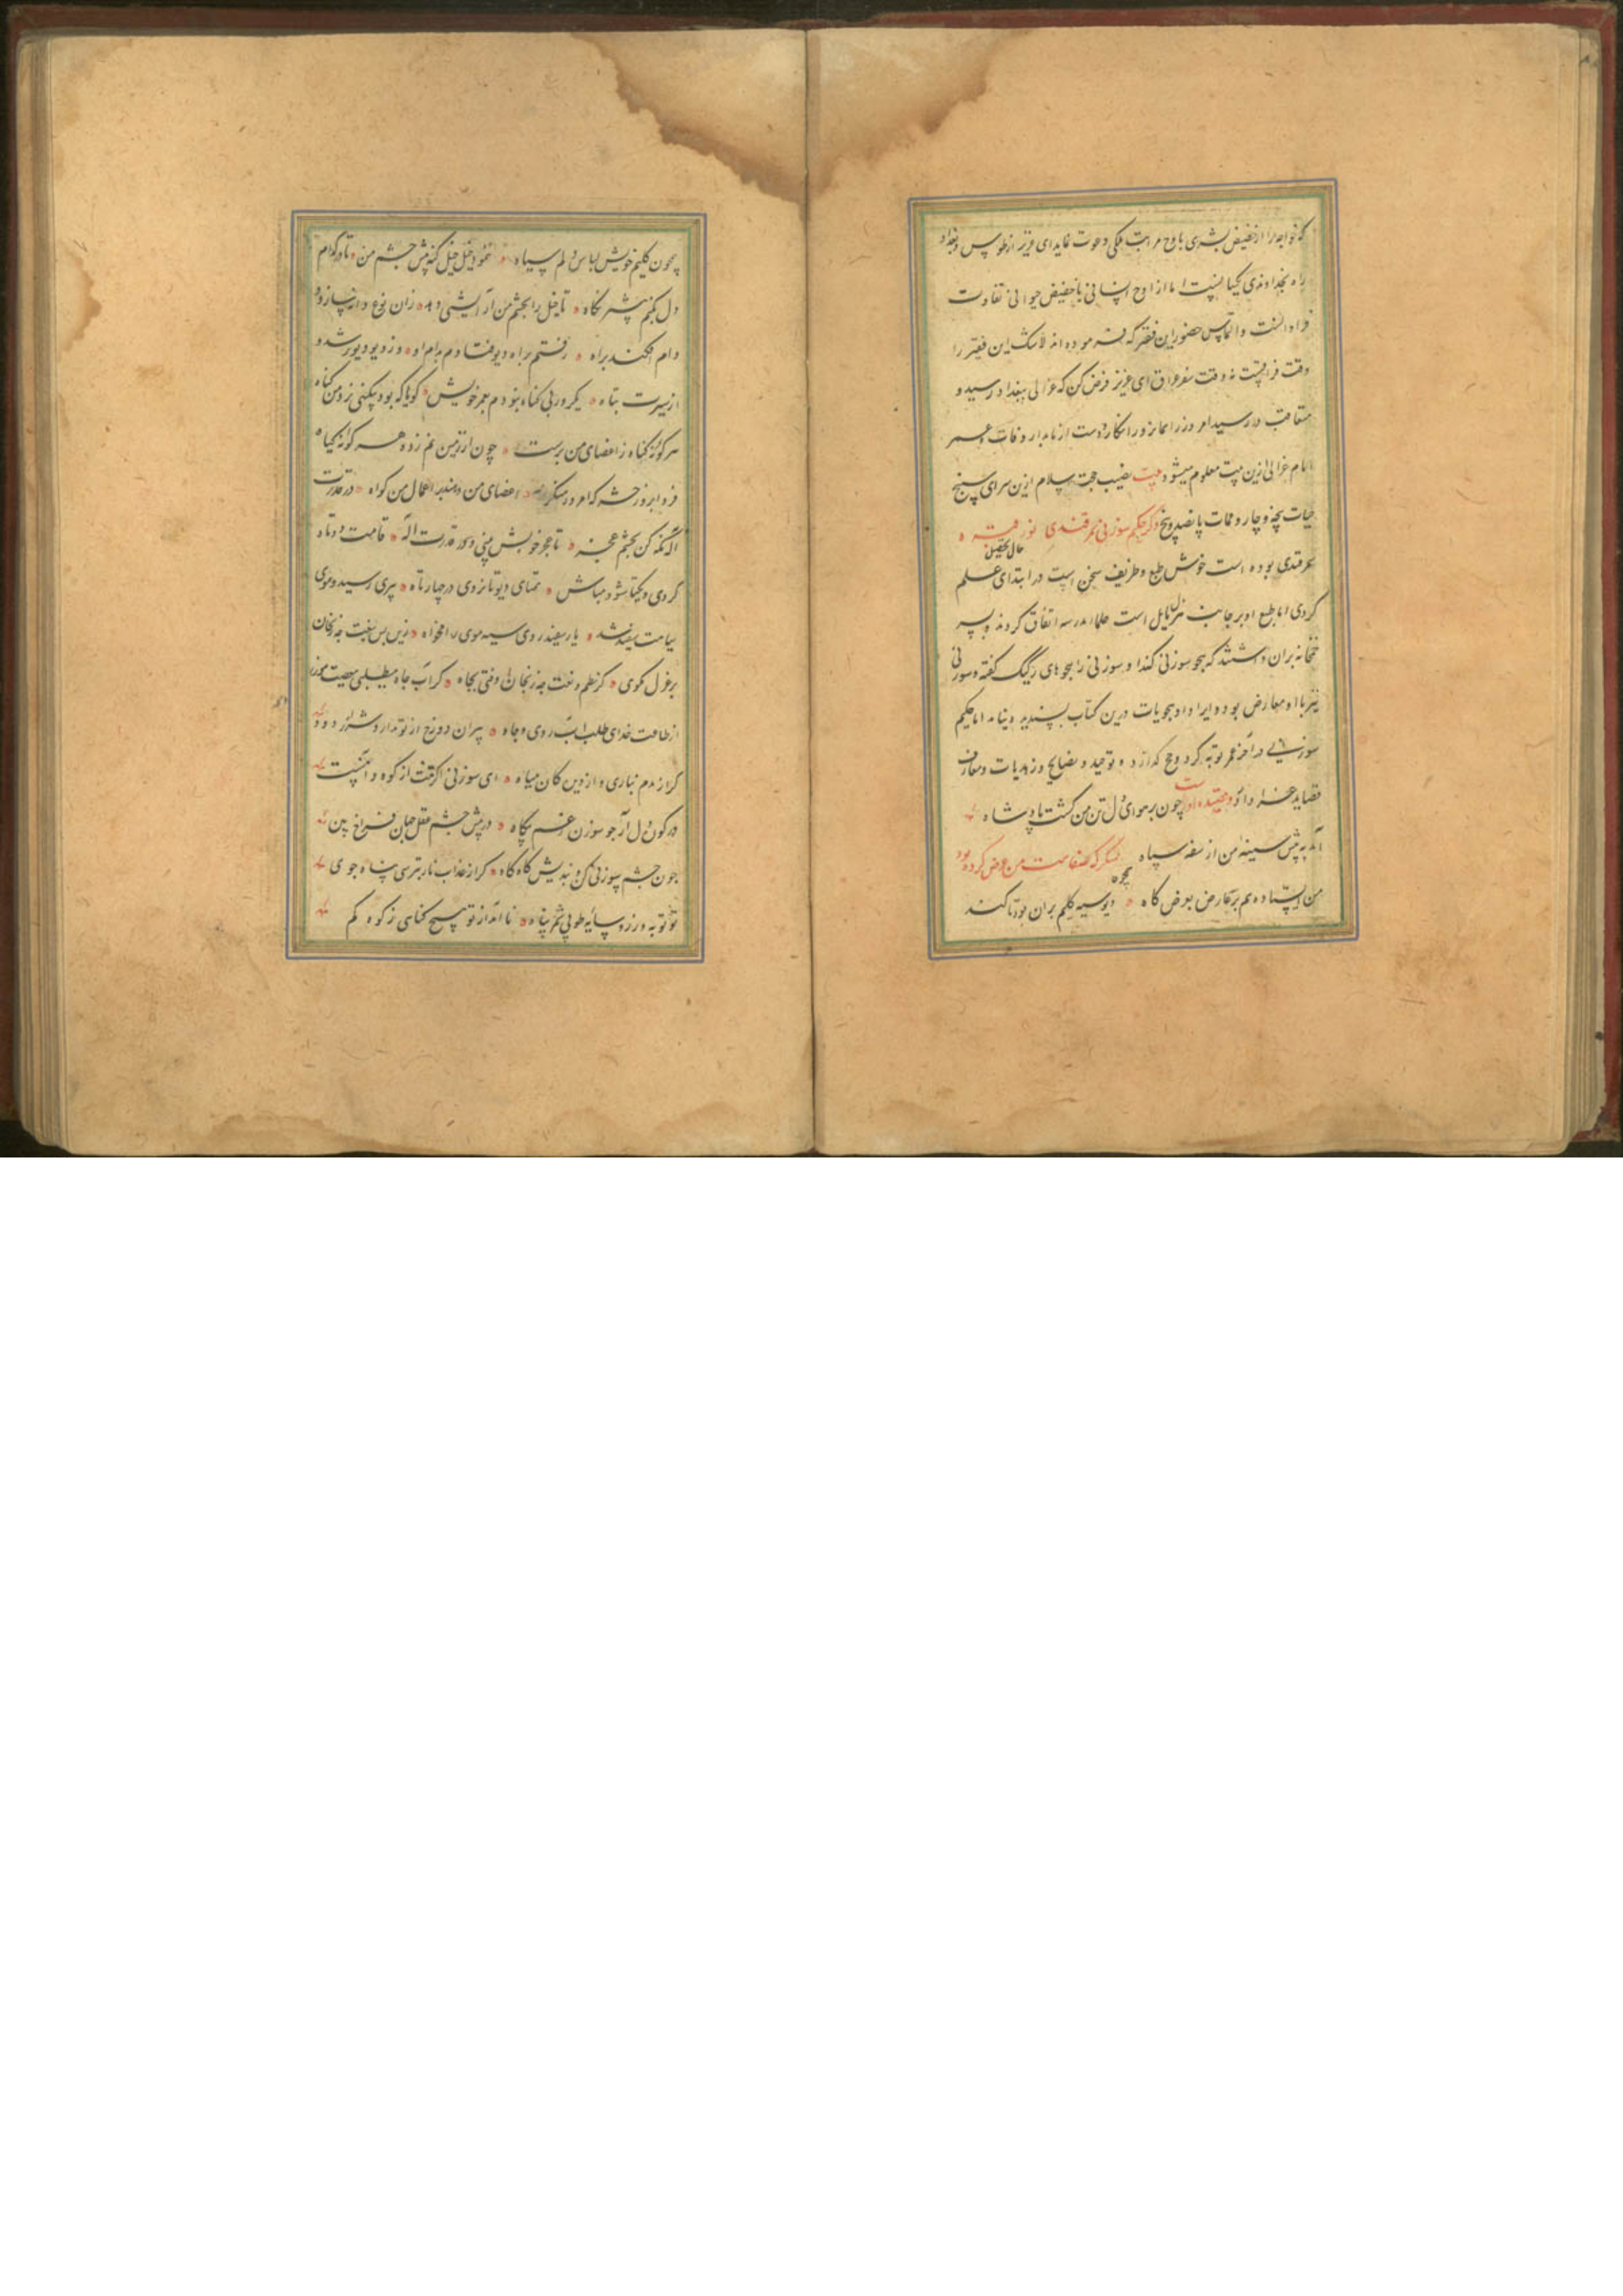 که خواجه مرا از حضیض بشری باوج مراتب ملکی دعوت نماید ای عزیز از طوس و بغداد
راه بخداوندی یکیا نیست اما از اوج انسانی با حضیض حیوانی تفاوت
فراوانست و التماس حضور این فقیر که فرموده اند لاشک این فقیر را
وقت فراقیست نه وقت سفر عراق ای عزیز فرض کن که غزالی ببغداد رسید و
متعاقب در رسید امروز را همان روز انکار و دست ازنامدار وفات
امام غزالی ازین بیت معلوم میشود بیت نصیب حجت اسلام ازین سرای سپنج
حیات پنجه و چار و ممات پانصد و پنج ذکر حکیم سوزنی سمرقندی نور
سمرقندی بوده است خوش طبع و ظریف سخن است در ابتدای حال تحصیل علم
کردی اما طبع او بر جانب هزل مایل است علما مدرسه اتفاق کردند و پسر
خمخانه بران داشتند که هجو سوزنی کند او سوزنی را هجوهای رکیک گفته و سوزنی
نیز با او معارض بوده و ایراد او هجویات درین کتاب پسندیده ننماید اما حکیم
سوزنی در آخر عمر توبه کرد و حج گذارد و توحید و نصایح و زهدیات و معارف
قصاید غرا دارد و قصیده اوست چون بر هوای دل تن من گشت پادشاه
آمد به پیش سینه من از سفه سپاه لشکرگه ضلالت من عرض کرده بود
من ایستاده هم بر عارض بعرض گاه دیو سیه گلیم بران بود تا کند
همچون گلیم خویش لباس دلم سیاه بنمود خیل خیل گنه پیش چشم من تا در کدام
دل بکنم بیشتر نگاه تا خیل را بچشم من آرایشی دهد زان نوع دانه سازد و
دام افکند براه رفتم براه دیو فتادم بدام او وز دیو دیوتر شدم
از سیرت تباه یکروز بی گناه نبودم بعمر خویش گویا که بود بیگنهی نزد من گناه
هر گونه گناه ز اعضای من برست چون از زمین نم زده هر گونه گیاه
فردا بروز حشر که امروز منکرند اعضای من دهند بر اعمال من گواه در قدرت
اله نگه کن بچشم عجز تا عجز خویش بینی و در قدرت اله قامت دوتاه
کردی و یکتا نشو مباش همتای دیو تا نروی در چهار تاه پیری رسید و موی
سیاهت سفید شد یار سفید روی سیه موی را مخواه زین پس بنعت چه زنخدان
برغزل مگوی کز نظم و نعت چه زنخدان فتی بچاه گر آب جاه میطلبی معصیت مورز
از طاعت خدای طلب آب روی و جاه پیران دوزخ از تو ندارد شرار و دود
گر از ندم نباری و از دین کان میاه ای سوزنی اگر تنت از کوه آهنست
در کوره دل آر چو سوزن غم بکاه در پیش چشم عقل جهان فراخ بین
چون چشم سوزنی کن و بندیش گاه گاه گر از عذاب نار بترسی پناه جوی
تو توبه ورز و سایه طوبی شمر پناه نامد از تو هیچ گناهی ز کوه کم